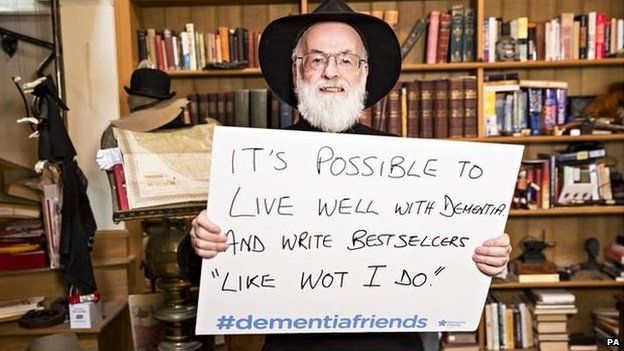 IT'S POSSIBLE TO
LIVE WELL WITH DEMENTIA
AND WRITE BESTSELLERS
"LIKE WOT I DO."
#dementiafriends
PA